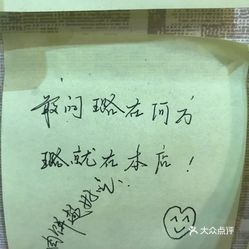 敢问路在何方
路就在本店！
大众点评